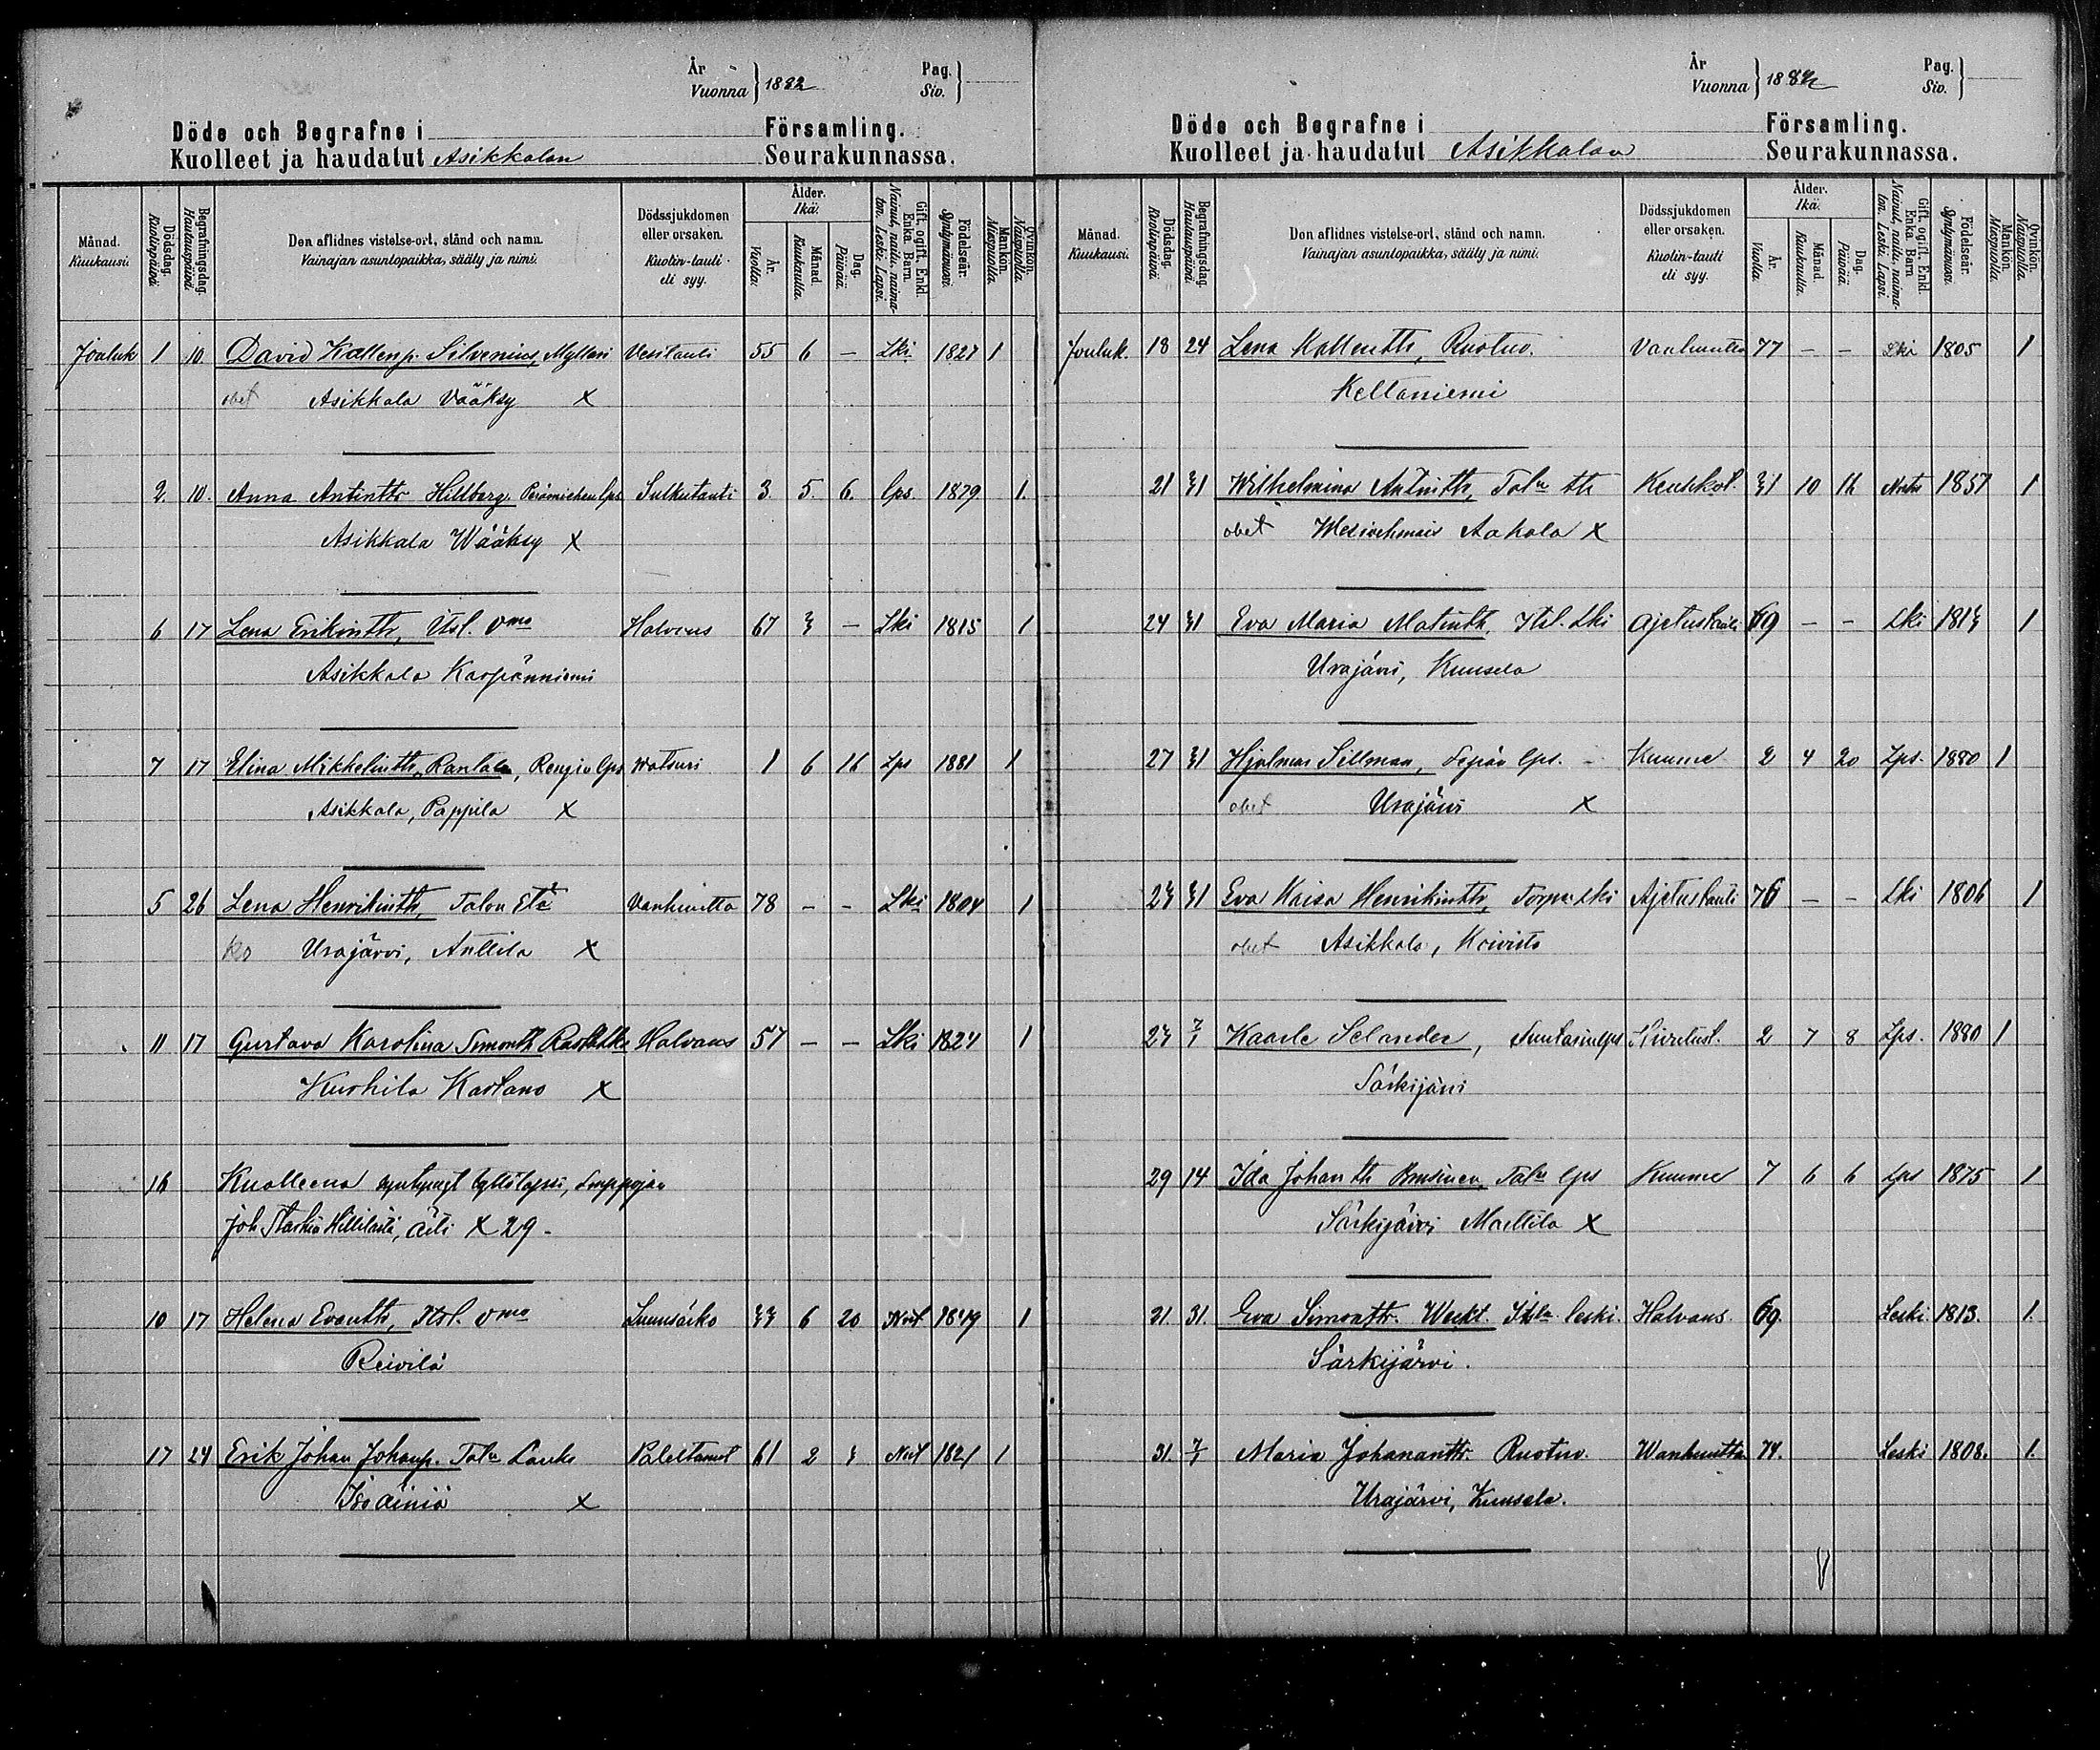 År
Vuonna } 1882
Pag.
Siv. }
Döde och Begrafne i Församling.
Kuolleet ja haudatut Asikkalan Seurakunnassa.
Månad. Kuukausi.
Dödsdag. Kuolinpäivä
Begrafningsdag. Hautauspäivä
Den aflidnes vistelse-ort, stånd och namn.
Vainajan asuntopaikka, sääty ja nimi.
Dödssjukdomen eller orsaken.
Kuolin-tauti eli syy.
Ålder. Ikä.
År. Vuotta.
Månad. Kuukautta.
Dag. Päivää.
Gift, ogift. Enkl. Enka. Barn.
Nainut, naitu, naimaton. Leski. Lapsi.
Födelseår. Syntymävuosi.
Mankön. Miespuolia.
Qvinkön. Naispuolia.
Jouluk 1 10 David Kallenp. Silvenius, Mylläri Vesitauti 55 6 — Lki 1827 1
obet Asikkala Vääksy X
2. 10. Anna Antintr Hildberg lps Sulkutauti 3. 5. 6. lps. 1879 1.
Asikkala Wääksy X
6 17 Lena Erikintr, Itsl. vmo Halvaus 67 3 — Lki 1815 1
Asikkala Karpänniemi
7 17 Elina Mikkelintr, Rantala, Rengin lps Watsuri 1 6 16 Lps 1881 1
Asikkala, Pappila X
5 26 Lena Henrikintr, Talon Vanhuutta 78 — — Lki 1804 1
ko Urajärvi, Anttila X
11 17 Gustava Karolina Simontr Halvaus 57 — — Lki 1824 1
Kurhila Kartano X
16 Kuolleena syntynyt tyttölapsi,
Joh. Hillilästä, äiti X 29 -
10 17 Helena Evantr, Itsl. vmo 33 6 20 Nut 1849 1
Reivilä
17 24 Erik Johan Johanp. Taln 61 2 3 Nut 1821 1
Isoäiniö X
År
Vuonna } 1882
Pag.
Siv. }
Döde och Begrafne i Församling.
Kuolleet ja haudatut Asikkalan Seurakunnassa.
Månad. Kuukausi.
Dödsdag. Kuolinpäivä
Begrafningsdag. Hautauspäivä
Den aflidnes vistelse-ort, stånd och namn.
Vainajan asuntopaikka, sääty ja nimi.
Dödssjukdomen eller orsaken.
Kuolin-tauti eli syy.
Ålder. Ikä.
År. Vuotta.
Månad. Kuukautta.
Dag. Päivää.
Gift, ogift. Enkl. Enka. Barn
Nainut, naitu, naimaton. Leski. Lapsi.
Födelseår. Syntymävuosi.
Mankön. Miespuolia.
Qvinkön. Naispuolia.
Jouluk. 18 24 Lena Kallentr, Ruotuv. Vanhuutta 77 — — Lki 1805 1
Keltaniemi
21 31 Wilhelmina Antintr, Taln tr Keuhkot. 31 10 16 1851 1
obet Wesivehmais Aakala X
24 31 Eva Maria Matintr, Itsl. Lki Ajetustauti 69 — — Lki 1813 1
Urajärvi, Kuusela
27 31 Hjalmar Sillman, Sepän lps. Kuume 2 4 20 Lps. 1880 1
obet Urajärvi X
23 31 Eva Kaisa Henrikintr, Torp. Lki Ajetustauti 76 — — Lki 1806 1
obet Asikkala, Koivisto
23 7/1 Kaarle Selander, Suutarin lps 2 7 8 Lps. 1880 1
Särkijärvi
29 14 Ida Johan tr Taln lps Kuume 7 6 6 Lps 1875 1
Särkijärvi Mattila X
31. 31. Eva Simontr. Weckt. Itsln leski. Halvaus. 69. Leski. 1813. 1.
Särkijärvi.
31. 7/1 Maria Johanantr. Ruotuv. Wanhuutta 74. Leski 1808. 1.
Urajärvi, Kuusela.